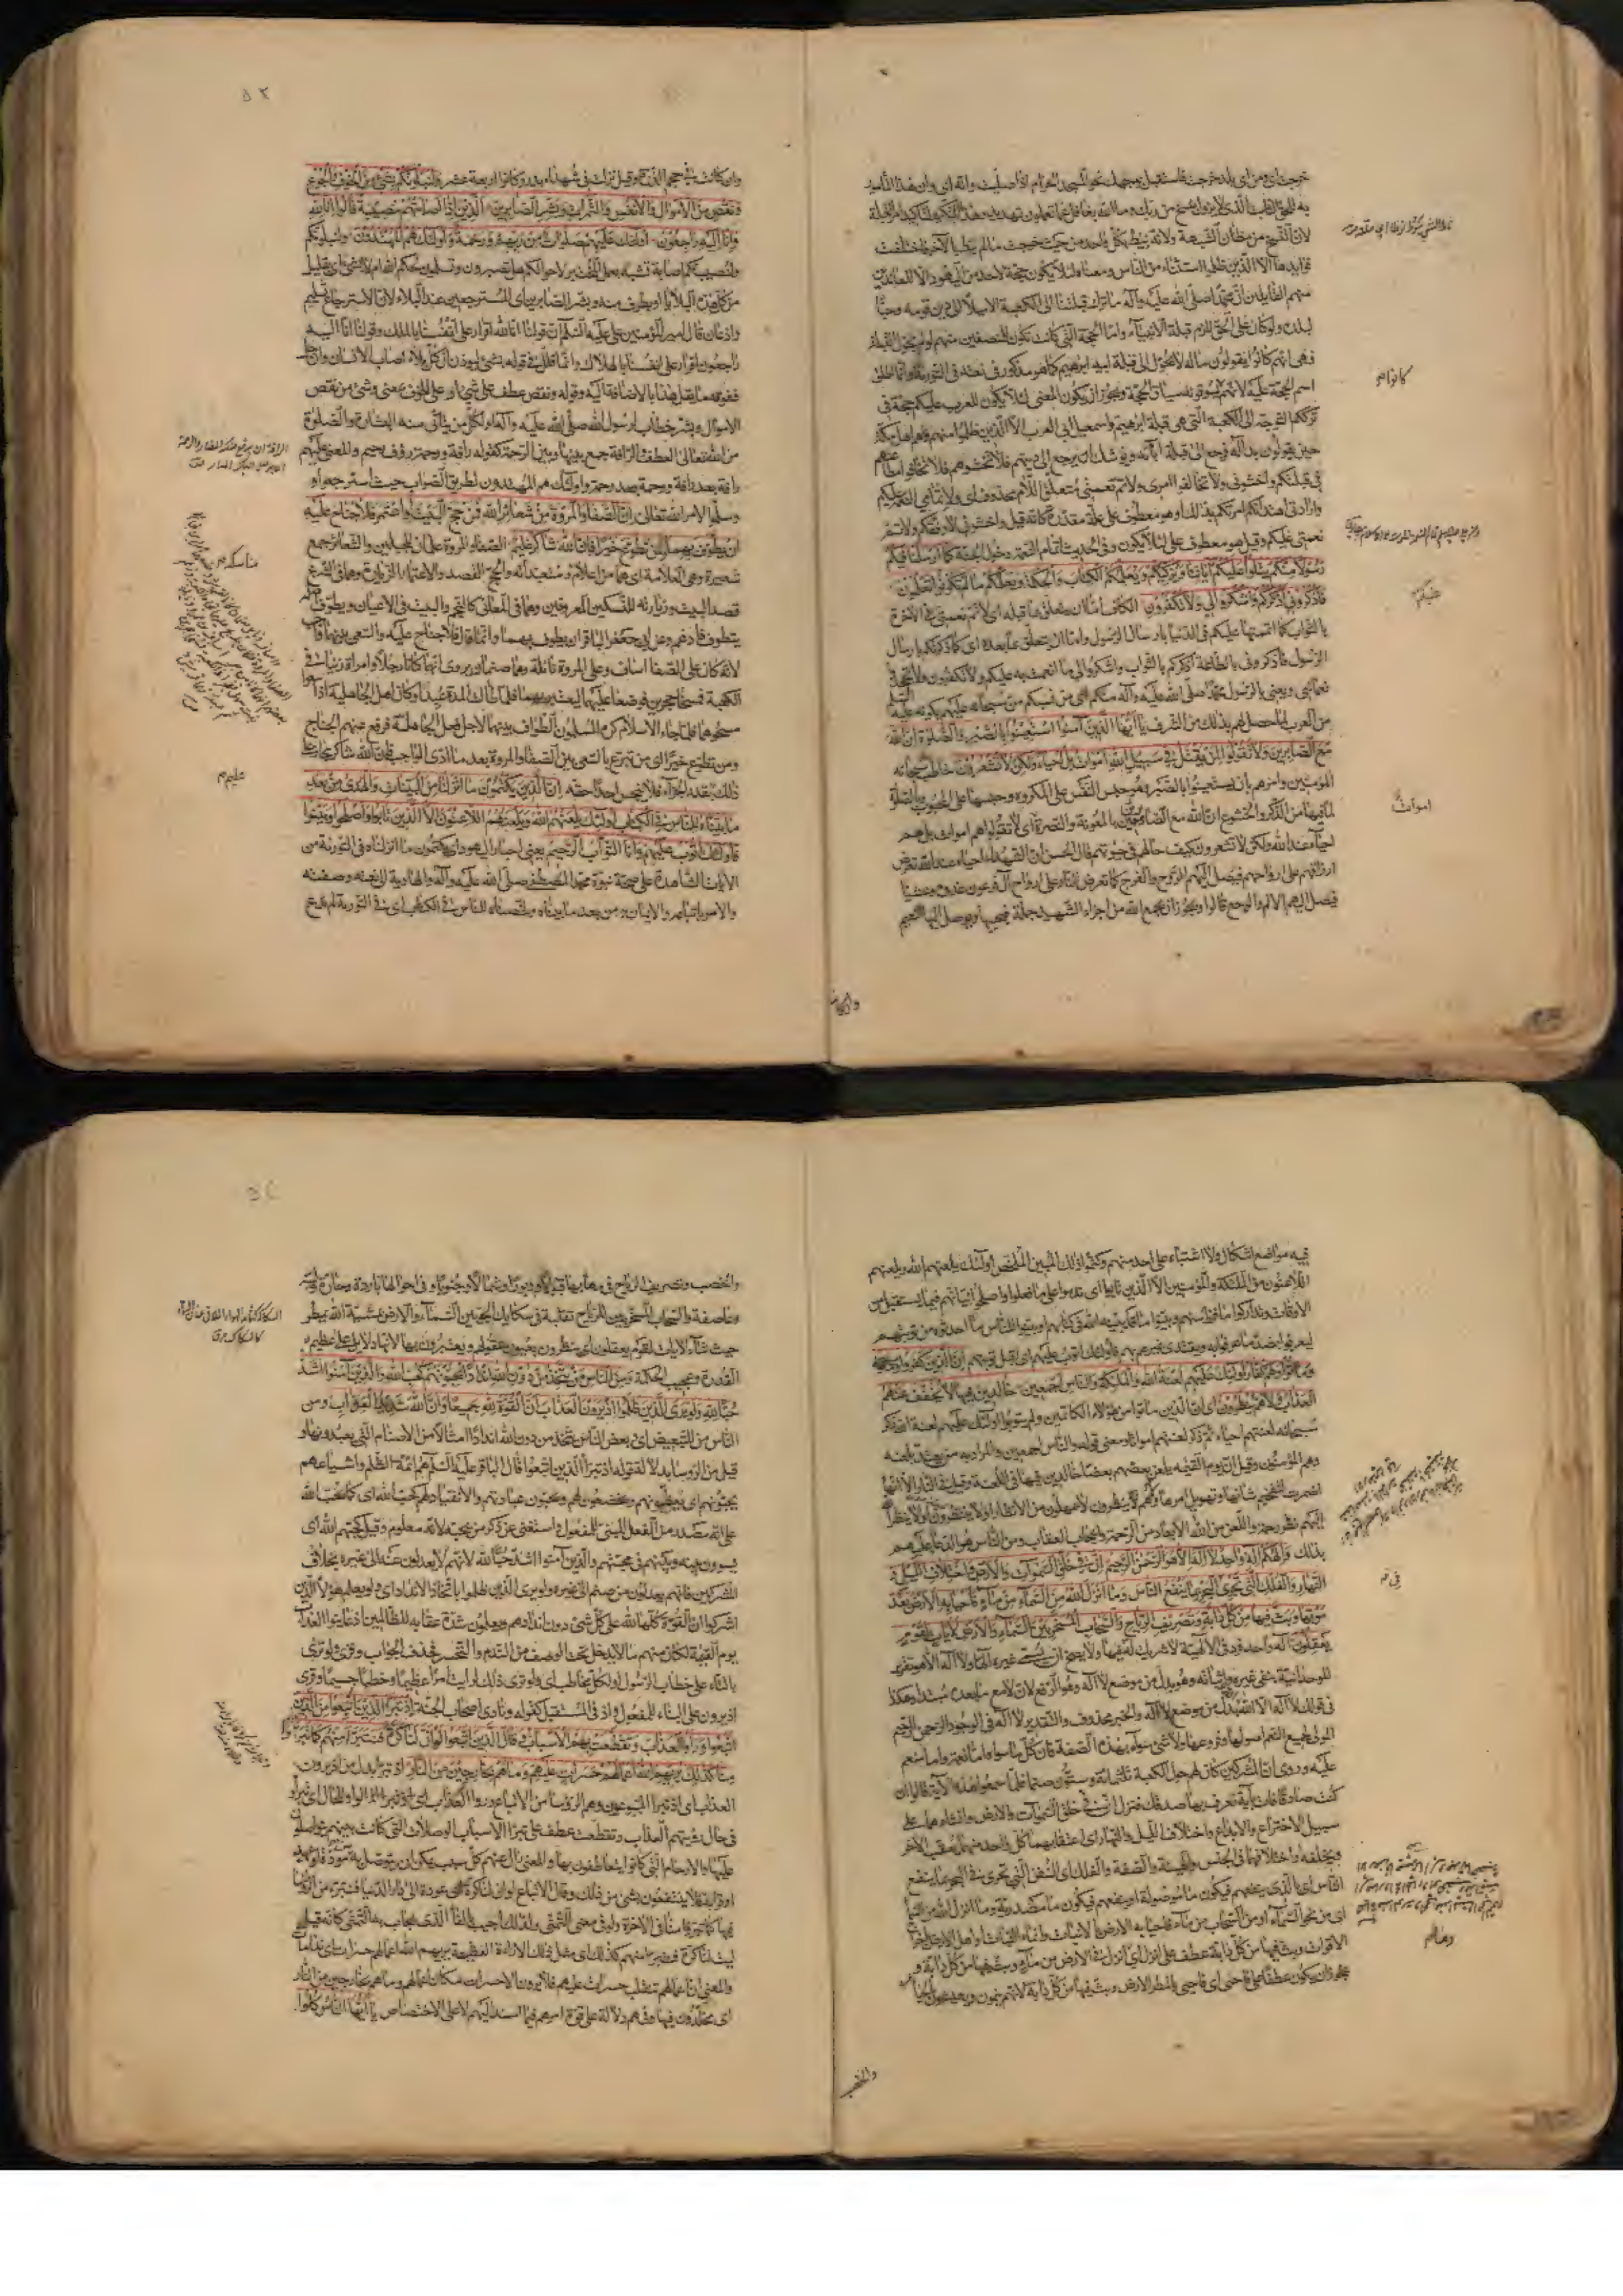 خرجت اى ومن اى بلد خرجت فاستقبل بوجهك نحو المسجد الحرام اذا صليت وانه اى وان هذا المأمور
به للحق الثابت الذى لا يزول بنسخ من ربك وما الله بغافل عما تعملون تهديد وهذا التكرير لتأكيد امر القبلة
لان النسخ من مظان الشبهة ولانه ينيط بكل واحد من حيث خرجت ما لم ينط بالآخر فاختلفت
فوايدها الا الذين ظلموا استثناء من الناس ومعناه لئلا يكون حجة لاحد من اليهود الا للمعاندين
منهم القايلين ان محمدا صلى الله عليه وآله ما ترك قبلتنا الى الكعبة الا ميلا الى دين قومه وحبا
لبلده ولو كان على الحق للزم قبلة الانبياء واما الحجة التى كانت تكون للمنصفين منهم لو لم يحول القبلة
فهى انهم كانوا يقولون ما له لا يحول الى قبلة ابيه ابرهيم كما هو مذكور فى نعته فى التورية وانما اطلق
اسم الحجة عليه لانهم يسوقونه سياق الحجة ويجوز ان يكون المعنى لئلا يكون للعرب عليكم حجة فى
ترككم التوجه الى الكعبة التى هى قبلة ابرهيم واسمعيل ابى العرب الا الذين ظلموا منهم وهم اهل مكة
حين يقولون بدا له فرجع الى قبلة آبائه ويوشك ان يرجع الى دينهم فلا تخشوهم فلا تخافوا مطاعنهم
فى قبلتكم واخشونى ولا تخالفوا امرى ولاتم نعمتى متعلق اللام محذوف اى ولاتمامى النعمة عليكم
وارادتى اهتداكم امرتكم بذلك او هو معطوف على علة مقدرة كانه قيل واخشونى لاوفقكم ولاتم
نعمتى عليكم وقيل هو معطوف على لئلا يكون وفى الحديث تمام النعمة دخول الجنة كما ارسلنا فيكم
رسولا منكم يتلوا عليكم آياتنا ويزكيكم ويعلمكم الكتاب والحكمة ويعلمكم ما لم تكونوا تعلمون
فاذكرونى اذكركم واشكروا لى ولا تكفرون الكاف اما ان يتعلق بما قبله اى ولاتم نعمتى فى الآخرة
بالثواب كما اتممتها عليكم فى الدنيا بارسال الرسول واما ان يتعلق بما بعده اى كما ذكرتكم بارسال
الرسول فاذكرونى بالطاعة اذكركم بالثواب واشكروا لى ما انعمت به عليكم ولا تكفرون ولا تجحدوا
نعمائى ويعنى بالرسول محمدا صلى الله عليه وآله منكم اى من نسبكم من سبحانه عليهم بكونه عليه السلم
من العرب لما حصل لهم بذلك من الشرف يا ايها الذين آمنوا استعينوا بالصبر والصلوة ان الله
مع الصابرين ولا تقولوا لمن يقتل فى سبيل الله اموات بل احياء ولكن لا تشعرون خاطب سبحانه
المؤمنين وامرهم بان يستعينوا بالصبر وهو حبس النفس على المكروه وحبسها عن المحبوب وبالصلوة
لما فيها من الذكر والخشوع ان الله مع الصابرين بالمعونة والنصرة اى لا تقولوا هم اموات بل هم
احياء عند الله ولكن لا تشعرون كيف حالهم فى حيوتهم قال الحسن ان الشهداء احياء عند الله تعرض
ارزاقهم على ارواحهم فيصل اليهم الروح والفرح كما تعرض النار على ارواح آل فرعون غدوا وعشيا
فيصل اليهم الالم والوجع قالوا ويجوز ان يجمع الله من اجزاء الشهيد جملة فيحييها ويوصل اليها النعيم
كانوا
عليكم
اموات
۵۲
وان كانت فى حجم الذرة وقيل نزلت فى شهداء بدر وكانوا اربعة عشر ولنبلونكم بشىء من الخوف والجوع
ونقص من الاموال والانفس والثمرات وبشر الصابرين الذين اذا اصابتهم مصيبة قالوا انا لله
وانا اليه راجعون اولئك عليهم صلوات من ربهم ورحمة واولئك هم المهتدون ولنبلونكم
ولنصيبنكم اصابة تشبه بعمل المختبر لاحوالكم هل تصبرون وتسلمون لحكم الله ام لا بشىء اى بقليل
من كل هذه البلايا او بطرف منه وبشر الصابرين اى المسترجعين عند البلاء لان الاسترجاع تسليم
واذعان قال امير المؤمنين على عليه السلم ان قولنا انا لله اقرار على انفسنا بالملك وقولنا انا اليه
راجعون اقرار على انفسنا بالهلاك وانما قلل فى قوله بشىء ليوذن ان كل بلاء اصاب الانسان وان جل
ففوقه ما يقل هذا بالاضافة اليه وقوله ونقص عطف على شىء او على الخوف بمعنى وشىء من نقص
الاموال وبشر خطاب لرسول الله صلى الله عليه وآله او لكل من يتأتى منه البشارة والصلوة
من الله تعالى العطف والرافة جمع بينها وبين الرحمة كقوله رافة ورحمة رؤف رحيم والمعنى عليهم
رافة بعد رافة ورحمة بعد رحمة واولئك هم المهتدون لطريق الصواب حيث استرجعوا
وسلموا لامر الله تعالى ان الصفا والمروة من شعائر الله فمن حج البيت او اعتمر فلا جناح عليه
ان يطوف بهما ومن تطوع خيرا فان الله شاكر عليم الصفا والمروة علمان للجبلين والشعائر جمع
شعيرة وهى العلامة اى هما من اعلام متعبداته والحج القصد والاعتمار الزيارة وهما فى الشرع
قصد البيت وزيارته للنسكين المعروفين وهما فى المعانى كالنجم والبيت فى الاعيان ويطوف اصله
يتطوف فادغم وعن ابى جعفر الباقر ان يطوف بهما وانما قال فلا جناح عليه والسعى بينهما واجب
لانه كان على الصفا اساف وعلى المروة نائلة وهما صنمان ويروى انهما كانا رجلا وامراة زنيا فى
الكعبة فمسخا حجرين فوضعا عليهما ليعتبر بهما فلما طالت المدة عبدا وكان اهل الجاهلية اذا سعوا
مسحوهما فلما جاء الاسلام كره المسلمون الطواف بينهما لاجل فعل الجاهلية فرفع عنهم الجناح
ومن تطوع خيرا اى من تبرع بالسعى بين الصفا والمروة بعد ما ادى الواجب فان الله شاكر مجاز على
ذلك بقدر الجزاء فلا يبخس احدا حقه ان الذين يكتمون ما انزلنا من البينات والهدى من بعد
ما بيناه للناس فى الكتاب اولئك يلعنهم الله ويلعنهم اللاعنون الا الذين تابوا واصلحوا وبينوا
فاولئك اتوب عليهم وانا التواب الرحيم يعنى احبار اليهود اى يكتمون ما انزلناه فى التورية من
الآيات الشاهدة على صحة نبوة محمد المصطفى صلى الله عليه وآله والهادية الى نعته وصفته
والامر باتباعه والايمان به من بعد ما بيناه ولخصناه للناس فى الكتاب اى فى التورية لم ندع
مناسكه
عليم
فيه مواضع اشكال ولا اشتباه على احد منهم وكتموا ذلك المبين الملخص اولئك يلعنهم الله ويلعنهم
اللاعنون من الملئكة والمؤمنين الا الذين تابوا اى ندموا على ما فعلوا واصلحوا نياتهم فيما يستقبل من
الاوقات وتداركوا ما فرط منهم وبينوا ما قد بينه الله فى كتابهم او بينوا للناس ما احدثوه من توبتهم
ليعرفوا بضد ما عرفوا به ويقتدى غيرهم بهم فاولئك اتوب عليهم اى اقبل توبتهم ان الذين كفروا
وماتوا وهم كفار اولئك عليهم لعنة الله والملئكة والناس اجمعين خالدين فيها لا يخفف عنهم
العذاب ولا هم ينظرون اى ان الذين ماتوا من هؤلاء الكاتمين ولم يتوبوا اولئك عليهم لعنة الله ذكر
سبحانه لعنتهم احياء ثم ذكر لعنتهم امواتا ومعنى قوله والناس اجمعين والمراد به من يعتد بلعنه
وهم المؤمنون وقيل ان يوم القيمة يلعن بعضهم بعضا خالدين فيها فى اللعنة وقيل فى النار الا انها
اضمرت لتفخيم شانها وتهويل امرها ولا هم ينظرون لا يمهلون من الانظار او لا ينتظرون او لا ينظر
اليهم نظر رحمة واللعن من الله الابعاد من الرحمة وايجاب العقاب ومن الناس هو الدعاء عليهم
بذلك والهكم اله واحد لا اله الا هو الرحمن الرحيم ان فى خلق السموات والارض واختلاف الليل و
النهار والفلك التى تجرى فى البحر بما ينفع الناس وما انزل الله من السماء من ماء فاحيا به الارض بعد
موتها وبث فيها من كل دابة وتصريف الرياح والسحاب المسخر بين السماء والارض لآيات لقوم
يعقلون اله واحد فرد فى الالهية لا شريك له فيها ولا يصح ان يسمى غيره الها ولا اله الا هو تقرير
للوحدانية بنفى غيره واثباته وهو بدل من موضع لا اله وهو الرفع
فى قولك لا اله الا الله بدل من موضع لا اله والخبر محذوف والتقدير لا اله فى الوجود الرحمن الرحيم
المولى لجميع النعم اصولها وفروعها ولا شىء سواه بهذه الصفة فان كل ما سواه اما نعمة واما منعم
عليه وروى ان المشركين كان لهم حول الكعبة ثلثمائة وستون صنما فلما سمعوا هذه الآية قالوا ان
كنت صادقا فأت بآية نعرف بها صدقك فنزل ان فى خلق السموات والارض وانشاءهما على
سبيل الاختراع والابداع واختلاف الليل والنهار اى اعتقابهما كل واحد منهما يعقب الآخر
ويخلفه او اختلافهما فى الجنس والهيئة والصفة والفلك اى السفن التى تجرى فى البحر بما ينفع
الناس اى بالذى ينفعهم فيكون ما موصولة او بنفعهم فيكون ما مصدرية وما انزل الله من السماء
اى من نحو السماء او من السحاب من ماء فاحيا به الارض بالانبات
الاقوات وبث فيها من كل دابة عطف على انزل اى انزل فى الارض من ماء وبث فيها من كل دابة و
يجوز ان يكون عطفا على فاحيى اى فاحيى بالمطر الارض وبث فيها من كل دابة لانهم ينمون ويعيشون بالحيا
والخصب
والخصب وتصريف الرياح فى مهابها قبولا ودبورا وشمالا وجنوبا وفى احوالها باردة وحارة ولينة
وعاصفة والسحاب المسخر بين للرياح تقلبه فى سكايك الجو بين السماء والارض بمشية الله يمطر
حيث شاء لآيات لقوم يعقلون اى ينظرون بعيون عقولهم ويعتبرون بها لانها دلايل على عظيم
القدرة وعجيب الحكمة ومن الناس من يتخذ من دون الله اندادا يحبونهم كحب الله والذين آمنوا اشد
حبا لله ولو يرى الذين ظلموا اذ يرون العذاب ان القوة لله جميعا وان الله شديد العذاب ومن
الناس من للتبعيض اى بعض الناس يتخذ من دون الله اندادا امثالا من الاصنام التى يعبدونها و
قيل من الرؤساء بدلالة قوله اذ تبرأ الذين اتبعوا قال الباقر عليه السلم هم ائمة الظلم واشياعهم
يحبونهم اى يعظمونهم ويخضعون لهم ويحبون عبادتهم والانقياد لهم كحب الله اى كما يحب الله
على انه مصدر من الفعل المبنى للمفعول واستغنى عن ذكر من يحبه لانه معلوم وقيل كحبهم الله اى
يسوون بينه وبينهم فى محبتهم والذين آمنوا اشد حبا لله لانهم لا يعدلون عنه الى غيره بخلاف
المشركين فانهم يعدلون من صنم الى غيره ولو يرى الذين ظلموا باتخاذ الانداد اى ولو يعلم هؤلاء الذين
اشركوا ان القوة كلها لله على كل شىء دون اندادهم ويعلمون شدة عقابه للظالمين اذ عاينوا العذاب
يوم القيمة لكان منهم ما لا يدخل تحت الوصف من الندم والتحسر فحذف الجواب وقرئ ولو ترى
بالتاء على خطاب الرسول او لكل مخاطب اى ولو ترى ذلك لرايت امرا عظيما وخطبا جسيما وقرئ
اذ يرون على البناء للمفعول واذ فى المستقبل كقوله ونادى اصحاب الجنة اذ تبرأ الذين اتبعوا من الذين
اتبعوا وراوا العذاب وتقطعت بهم الاسباب وقال الذين اتبعوا لو ان لنا كرة فنتبرأ منهم كما تبرؤا
منا كذلك يريهم الله اعمالهم حسرات عليهم وما هم بخارجين من النار اذ تبرأ بدل من اذ يرون
العذاب اى اذ تبرأ المتبوعون وهم الرؤساء من الاتباع وراوا العذاب الواو للحال اى تبرؤا
فى حال رؤيتهم العذاب وتقطعت عطف على تبرأ الاسباب الوصلات التى كانت بينهم يتواصلون
عليها والارحام التى كانوا يتعاطفون بها والمعنى زال عنهم كل سبب يمكن ان يتوصل به من مودة او عهد
او قرابة فلا ينتفعون بشىء من ذلك وقال الاتباع لو ان لنا كرة اى عودة الى دار الدنيا فنتبرأ من الرؤساء
فيها كما تبرؤا منا فى الآخرة ولو فى معنى التمنى ولذلك اجيب بالفاء الذى يجاب به التمنى كانه قيل
ليت لنا كرة فنتبرأ منهم كذلك اى مثل ذلك الاراءة الفظيعة يريهم الله اعمالهم حسرات اى ندامات
والمعنى ان اعمالهم تنقلب حسرات عليهم فلا يرون الا حسرات مكان اعمالهم وما هم بخارجين من النار
اى يخلدون فيها وهم دلالة على قوة امرهم فيما اسند اليهم لا على الاختصاص يا ايها الناس كلوا